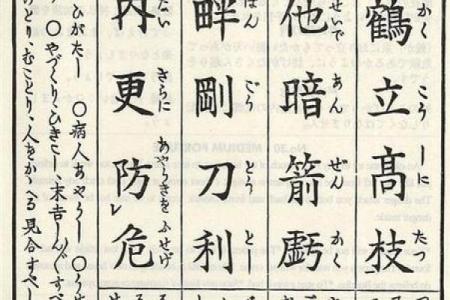 かく こう ーに たつ
鶴立高枝
せいで あん ぜん か
他暗箭虧
はん ごう とう と
畔剛刀利
たい さらに あやうきを ふせげ
内更防レ危
ひがたし ○病人あやうし ○うせ
○やづくりひきこし末吉し ○すべ
とり、むことり、人をかゝへる見合すべし